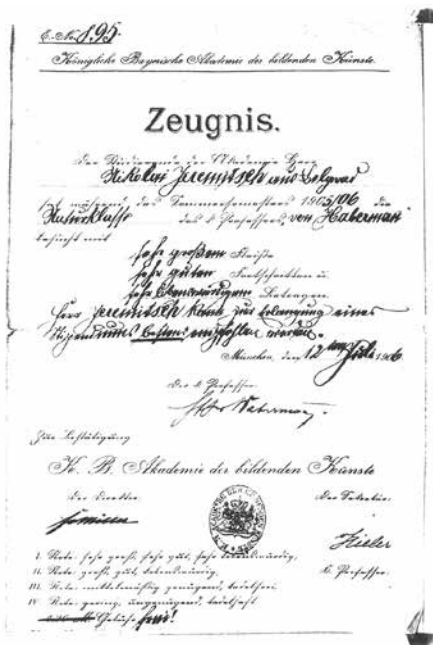 E.-No. 895.
Königliche Bayerische Akademie der bildenden Künste.
Zeugnis.
Der Studierende der Akademie Herr
Nikolai Jeremitsch aus Belgrad
hat während des Sommersemesters 1905/06 die
Naturklasse des k. Professors, von Haberman
besucht mit
sehr großem Fleiße
sehr guten Fortschritten u.
sehr lobenswürdigem Betragen.
Herr Jeremitsch kann zur Erlangung eines
Stipendiums bestens empfohlen werden.
München, den 12 ten Juli 1906
Der k. Professor
Zur Bestätigung
K. B. Akademie der bildenden Künste
Der Direktor:
Der Sekretär:
k. Professor.
I. Note: sehr groß, sehr gut, sehr lobenswürdig,
II. Note: groß, gut, lobenswürdig,
III. Note: mittelmäßig genügend, tadelfrei,
IV. Note: gering, ungenügend, tadelhaft